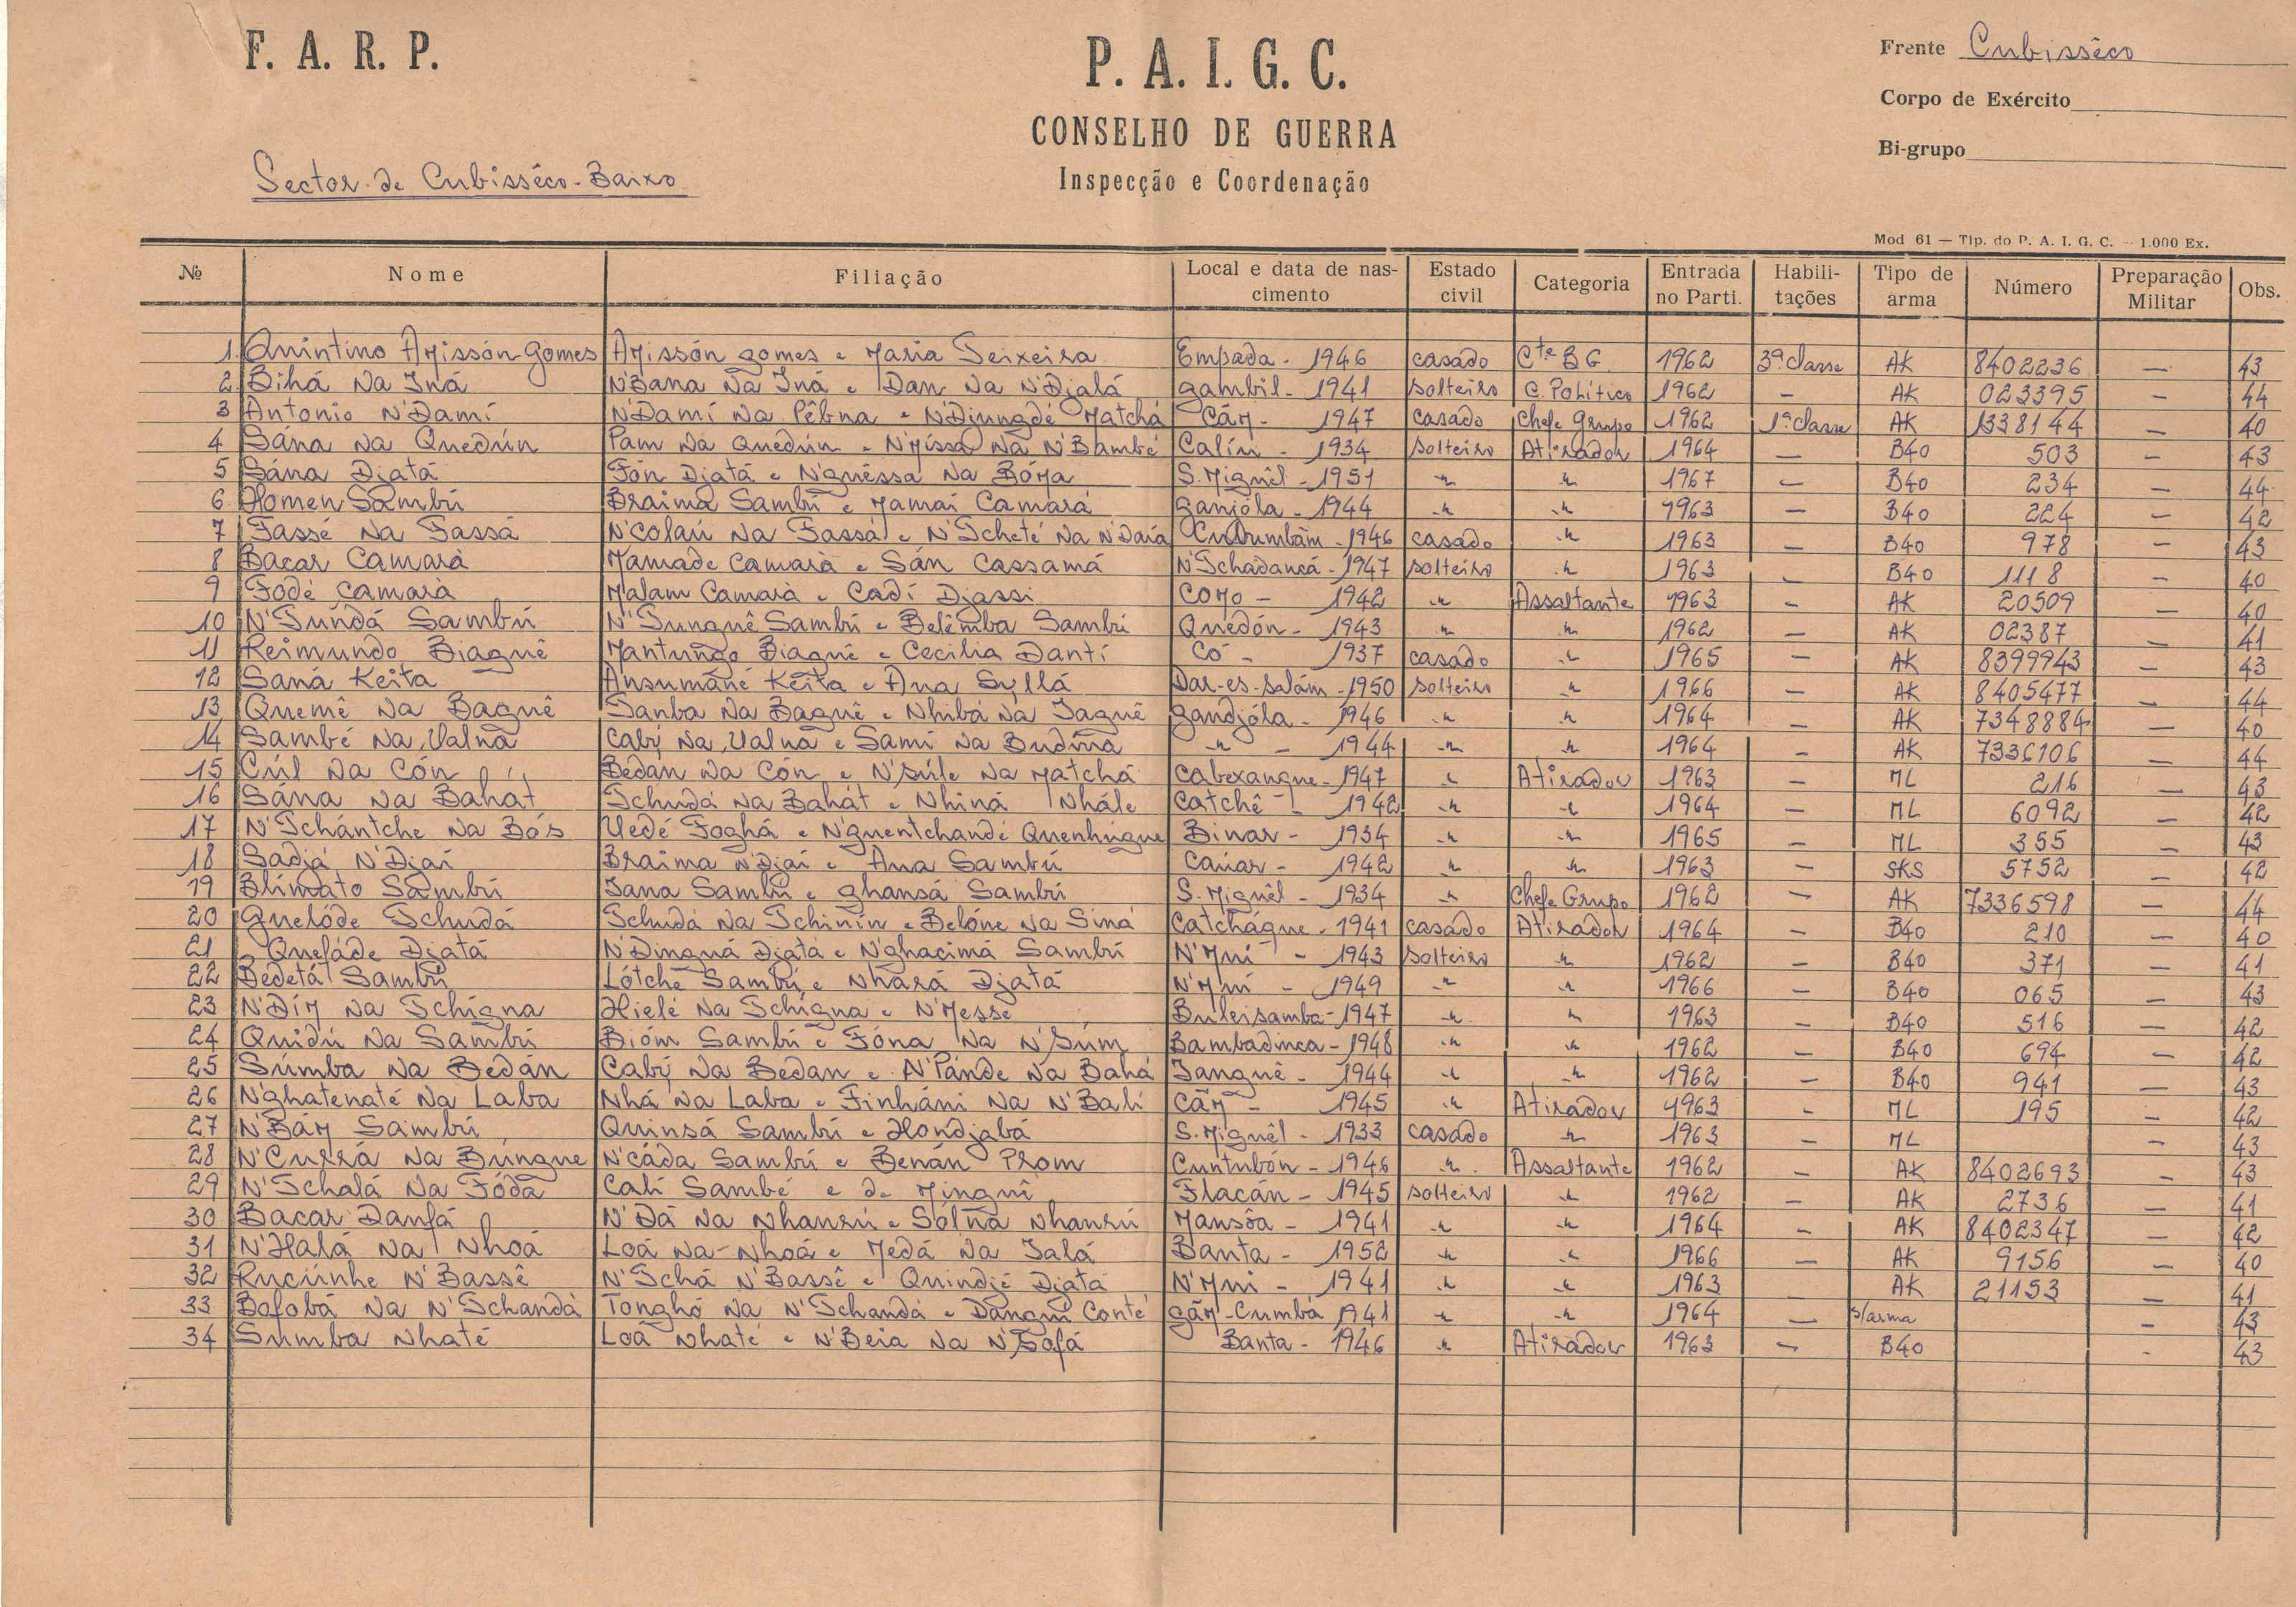 F. A. R. P.
P. A. I. G. C.
CONSELHO DE GUERRA
Inspecção e Coordenação
Frente Cubissêco
Corpo de Exército
Bi-grupo
Sector de Cubissêco-Baixo
Mod 61 — Tip. do P. A. I. G. C. — 1.000 Ex.
№ Nome Filiação Local e data de nascimento Estado civil Categoria Entrada no Parti. Habilitações Tipo de arma Número Preparação Militar Obs.
1 Quintino Arissón Gomes Arissón Gomes e Maria Teixeira Empada - 1946 casado Cte BG 1962 3ª classe AK 8402236 — 43
2 Bihá Na Iná N'Bana Na Iná e Dan Na N'Dialá Gambil - 1941 solteiro C. Político 1962 — AK 023395 — 44
3 Antonio N'Dami N'Damí Na Pêbna e N'Djungdé Matchá Cám - 1947 casado Chefe Grupo 1962 1ª classe AK 1338144 — 40
4 Sána Na Quedún Pam Na Quedún e N'Missa Na N'Bambé Calín - 1934 solteiro Atirador 1964 — B40 503 — 43
5 Sána Djatá Fón Djatá e N'guêssa Na Bóma S. Miguêl - 1951 -"- -"- 1967 — B40 234 — 44
6 Homen Sambú Braima Sambú e Mamai Camará Ganjóla - 1944 -"- -"- 1963 — B40 224 — 42
7 Fassé Na Fassá N'colaú Na Fassá e N'Tcheté Na N'Daiá - 1946 casado -"- 1963 — B40 978 — 43
8 Bacar Camarà Mamade Camarà e Sán Cassamá N'Tchadancá - 1947 solteiro -"- 1963 — B40 1118 — 40
9 Fodé Camarà Malam Camarà e Cadí Djassi Como - 1942 -"- Assaltante 1963 — AK 20509 — 40
10 N'Túndá Sambú N'Tunguê Sambú e Belêmba Sambú Quedón - 1943 -"- -"- 1962 — AK 02387 — 41
11 Reimundo Biaguê Mantungo Biaguê e Cecilia Dantí Có - 1937 casado -"- 1965 — AK 8399943 — 43
12 Saná Keita Ansumáné Keita e Ana Syllá Dar-es-salám - 1950 solteiro -"- 1966 — AK 8405477 — 44
13 Quemê Na Baguê Tanba Na Baguê e Nhibá Na Taguê Gandjóla - 1946 -"- -"- 1964 — AK 7348884 — 40
14 Sambé Na Ualna Cabí Na Ualna e Samí Na Budna -"- - 1944 -"- -"- 1964 — AK 7336106 — 44
15 Cúl Na Cón Bedan Na Cón e N'Súle Na Matchá Cabexangue - 1947 -"- Atirador 1963 — ML 216 — 43
16 Sána Na Bahat Tchudá Na Bahát e Nhiná Nhále Catchê - 1942 -"- -"- 1964 — ML 6092 — 42
17 N'Tchántche Na Bós Uedé Foghá e N'guentchandé Quenhúgue Binar - 1934 -"- -"- 1965 — ML 355 — 43
18 Sadjá N'Djai Braima N'Djaí e Ana Sambú Caúar - 1942 -"- -"- 1963 — SKS 5752 — 42
19 Blimato Sambú Tana Sambú e Ghansá Sambú S. Miguêl - 1934 -"- Chefe Grupo 1962 — AK 7336598 — 44
20 Quelóde Tchudá Tchudá Na Tchinín e Belóne Na Siná Catchágue - 1941 casado Atirador 1964 — B40 210 — 40
21 Quefáde Djatá N'Dinguá Djatá e N'ghacimá Sambú N'Mní - 1943 solteiro -"- 1962 — B40 371 — 41
22 Bedetá Sambú Lótche Sambú e Nhará Djatá N'Mní - 1949 -"- -"- 1966 — B40 065 — 43
23 N'Dím Na Tchígna Hielé Na Tchígna e N'Messe Buleisamba - 1947 -"- -"- 1963 — B40 516 — 42
24 Quidú Na Sambú Bióm Sambú e Fóna Na N'Súm Bambadinca - 1948 -"- -"- 1962 — B40 694 — 42
25 Súmba Na Bedán Cabí Na Bedan e N'Pánde Na Bahá Tanguê - 1944 -"- -"- 1962 — B40 941 — 43
26 N'ghatenaté Na Laba Nhá Na Laba e Finháni Na N'Balí Cãm - 1945 -"- Atirador 1963 — ML 195 — 42
27 N'Bám Sambú Quinsá Sambú e Hondjabá S. Miguêl - 1933 casado -"- 1963 — ML — 43
28 N'Currá Na Búngue N'cáda Sambú e Benán Prom Cuntubón - 1946 -"- Assaltante 1962 — AK 8402693 — 43
29 N'Tchalá Na Fóda Calí Sambé e de Minguî Flacán - 1945 solteiro -"- 1962 — AK 2736 — 41
30 Bacar Danfá N'Dá Na Nhanrú e Sólna Nhanrú Mansôa - 1941 -"- -"- 1964 — AK 8402347 — 42
31 N'Halá Na Nhoá Loá Na-Nhoá e Medá Na Talá Banta - 1952 -"- -"- 1966 — AK 9156 — 40
32 Ruciúnhe N'Bassê N'Tchá N'Bassê e Quindjé Djatá N'Mní - 1941 -"- -"- 1963 — AK 21153 — 41
33 Bofobá Na N'Tchandà Tonghó Na N'Tchandá e Dangui Conté Gãm-Cumbá 1941 -"- -"- 1964 — s/arma — 43
34 Sumba Nhaté Loá Nhaté e N'Beia Na N'Sofá Banta - 1946 -"- Atirador 1963 — B40 - 43